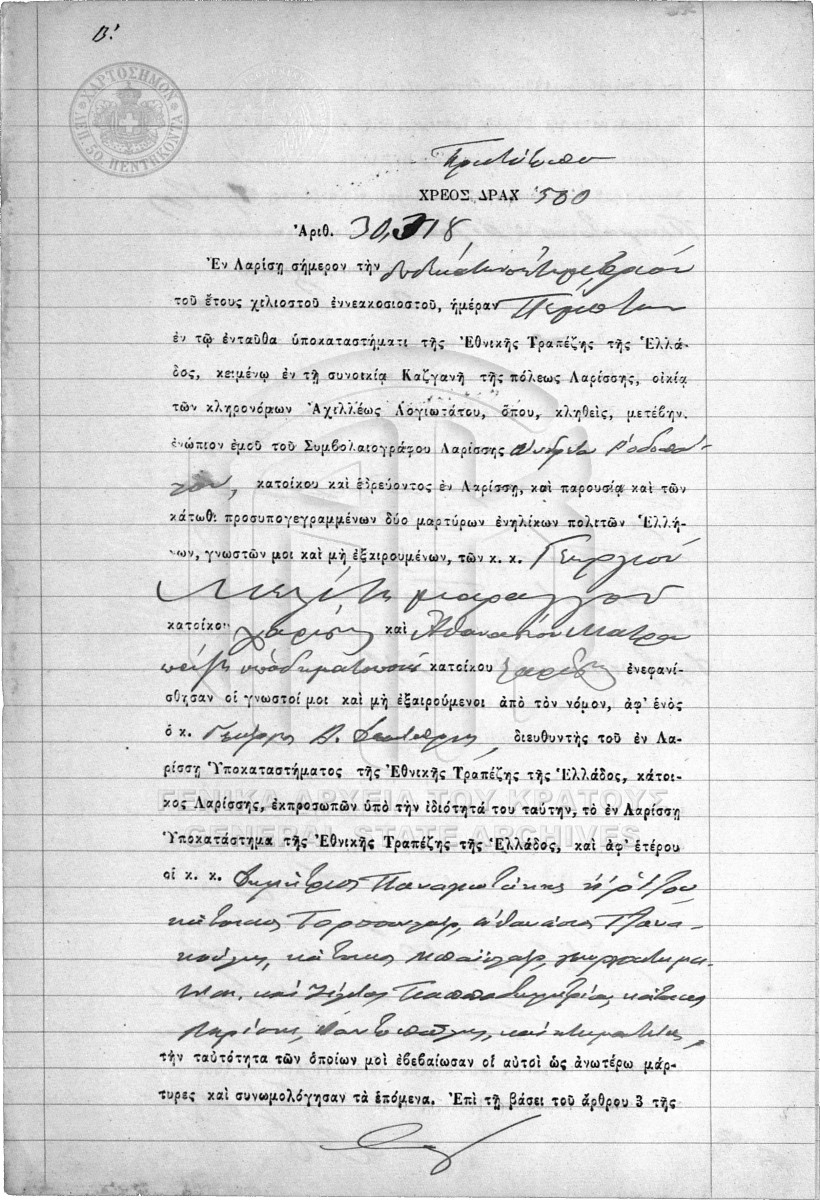 Β!
ΧΑΡΤΟΣΗΜΟΝ
ΛΕΠ. 50. ΠΕΝΤΗΚΟΝΤΑ
Πρωτότυπον
ΧΡΕΟΣ ΔΡΑΧ 500
Ἀριθ. 30,318
Ἐν Λαρίσῃ σήμερον τὴν
τοῦ ἔτους χιλιοστοῦ ἐννεακοσιοστοῦ, ἡμέραν Πέμπτην
ἐν τῷ ἐνταῦθα ὑποκαταστήματι τῆς Ἐθνικῆς Τραπέζης τῆς Ἑλλά-
δος, κειμένῳ ἐν τῇ συνοικίᾳ Καζγανῆ τῆς πόλεως Λαρίσσης, οἰκίᾳ
τῶν κληρονόμων Ἀχιλλέως Λογιωτάτου, ὅπου, κληθεὶς, μετέβην.
ἐνώπιον ἐμοῦ τοῦ Συμβολαιογράφου Λαρίσσης Ἀνδρέα Ῥοδοπού-
λου, κατοίκου καὶ ἑδρεύοντος ἐν Λαρίσσῃ, καὶ παρουσίᾳ καὶ τῶν
κάτωθι προσυπογεγραμμένων δύο μαρτύρων ἐνηλίκων πολιτῶν Ἑλλή-
νων, γνωστῶν μοι καὶ μὴ ἐξαιρουμένων, τῶν κ. κ. Γεωργίου
κατοίκου Λαρίσης καὶ Ἀθανασίου
ὑποδηματοποιοῦ κατοίκου Λαρίσης ἐνεφανί-
σθησαν οἱ γνωστοί μοι καὶ μὴ ἐξαιρούμενοι ἀπὸ τὸν νόμον, ἀφ' ἑνὸς
ὁ κ. Γεώργιος, διευθυντὴς τοῦ ἐν Λα-
ρίσσῃ Ὑποκαταστήματος τῆς Ἐθνικῆς Τραπέζης τῆς Ἑλλάδος, κάτοι-
κος Λαρίσσης, ἐκπροσωπῶν ὑπὸ τὴν ἰδιότητά του ταύτην, τὸ ἐν Λαρίσσῃ
ΓΕΝΙΚΑ ΑΡΧΕΙΑ ΤΟΥ ΚΡΑΤΟΥΣ
GENERAL STATE ARCHIVES
Ὑποκατάστημα τῆς Ἐθνικῆς Τραπέζης τῆς Ἑλλάδος, καὶ ἀφ' ἑτέρου
οἱ κ. κ. Δημήτριος Παναγιωτάκης
κάτοικος Ἀθανάσιος
κάτοικος
καὶ κάτοικος
Λαρίσης, καὶ κτηματίας,
τὴν ταὐτότητα τῶν ὁποίων μοὶ ἐβεβαίωσαν οἱ αὐτοὶ ὡς ἀνωτέρω μάρ-
τυρες καὶ συνωμολόγησαν τὰ ἑπόμενα. Ἐπὶ τῇ βάσει τοῦ ἄρθρου 3 τῆς